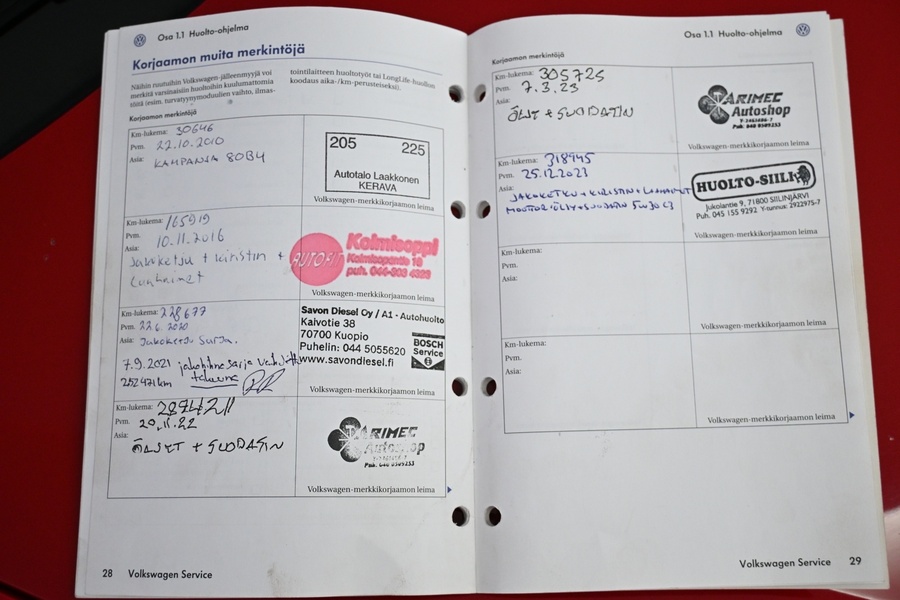 Osa 1.1 Huolto-ohjelma
Korjaamon muita merkintöjä
Näihin ruutuihin Volkswagen-jälleenmyyjä voi
merkitä varsinaisiin huoltoihin kuulumattomia
töitä (esim. turvatyynymoduulien vaihto, ilmas-
tointilaitteen huoltotyöt tai LongLife-huollon
koodaus aika-/km-perusteiseksi).
Korjaamon merkintöjä
Km-lukema: 30646
Pvm. 22.10.2010
Asia: KAMPANJA 80B4
205 225
Autotalo Laakkonen
KERAVA
Volkswagen-merkkikorjaamon leima
Km-lukema: 165919
Pvm. 10.11.2016
Asia: Jakoketju + kiristin +
Luuhaimet
AUTOFIT
Kolmisoppi
Kolmisopentie 18
Volkswagen-merkkikorjaamon leima
Km-lukema: 228677
Pvm. 22.6. 2020
Asia: Jakoketju Sarja.
7.9.2021 jakohihnasarja vaihdettu
252471km takuuna
Savon Diesel Oy / A1 - Autohuolto
Kaivotie 38
70700 Kuopio
Puhelin: 044 5055620
www.savondiesel.fi
BOSCH
Service
Volkswagen-merkkikorjaamon leima
Km-lukema:
Pvm. 20.11.22
Asia: ÖLJYT + SUODATIN
ARIMEC
Autoshop
Puh. 040 8509253
Volkswagen-merkkikorjaamon leima
28 Volkswagen Service
Osa 1.1 Huolto-ohjelma
Korjaamon merkintöjä
Km-lukema: 305725
Pvm. 7.3.23
Asia:
ÖLJYT + SUODATIN
ARIMEC
Autoshop
Puh. 040 8509253
Volkswagen-merkkikorjaamon leima
Km-lukema: 318945
Pvm. 25.12.2023
Asia: JAKOKETJU + KIRISTIN + LAAHAIMET
MOOTTORIÖLJY + SUODATIN 5W30 C3
HUOLTO-SIILI
Jukolantie 9, 71800 SIILINJÄRVI
Puh. 045 155 9292 Y-tunnus: 2922975-7
Volkswagen-merkkikorjaamon leima
Km-lukema:
Pvm.
Asia:
Volkswagen-merkkikorjaamon leima
Km-lukema:
Pvm.
Asia:
Volkswagen-merkkikorjaamon leima
Volkswagen Service 29